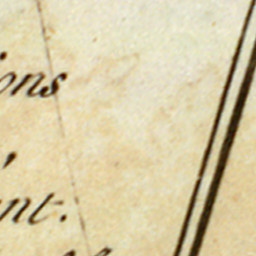 ions
,
nt.